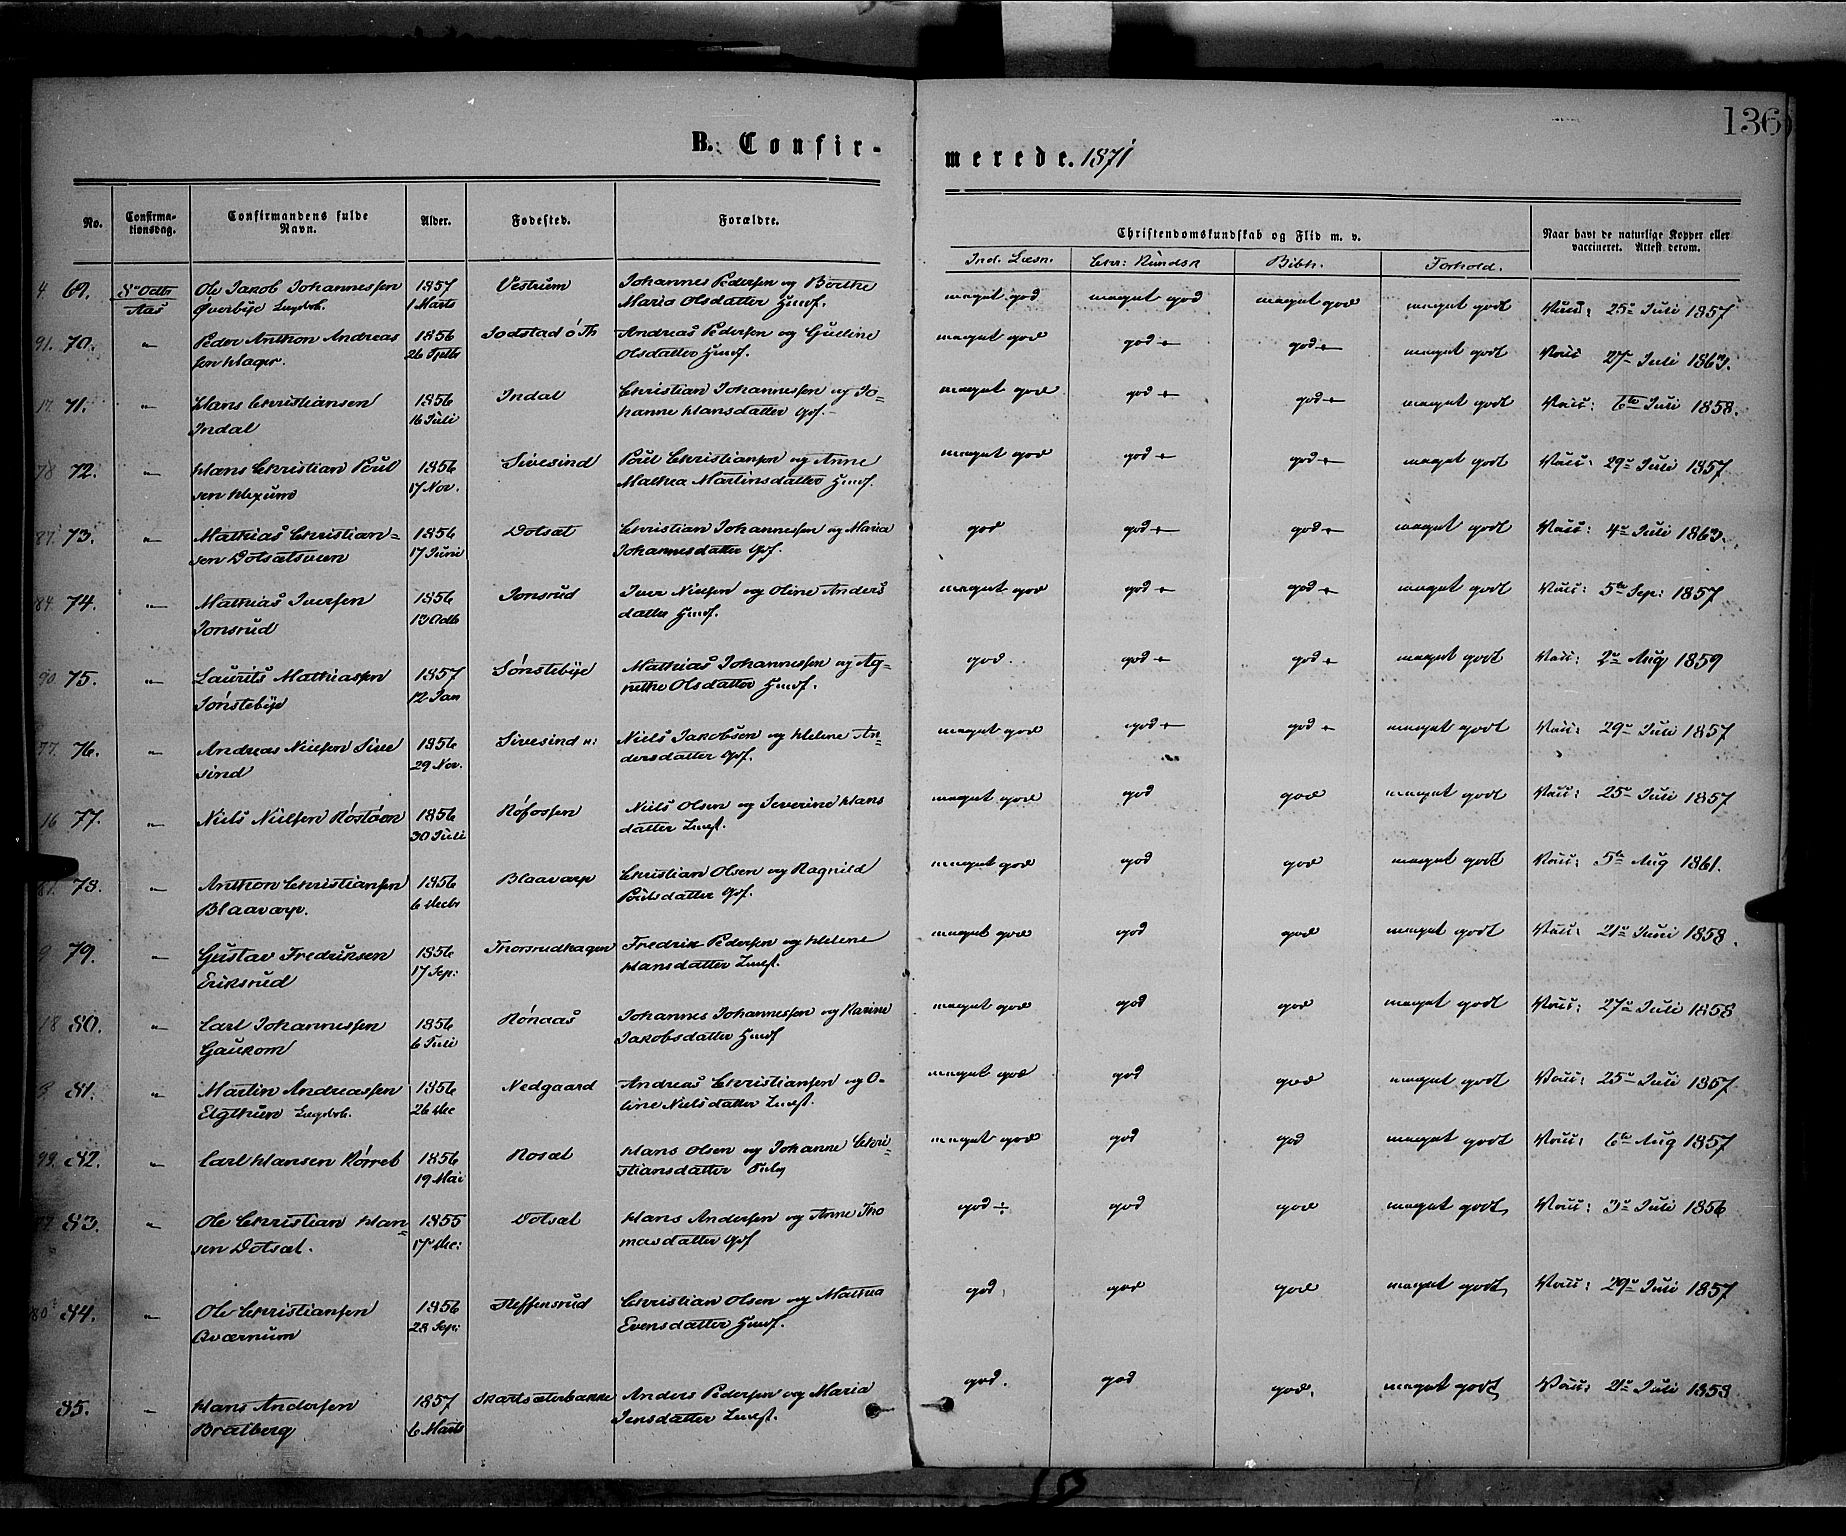 136
B. Confir-
merede. 1871
No.
Confirma-
tionsdag.
Confirmandens fulde
Navn.
Alder.
Fødested.
Forældre.
Christendomskundskab og Flid m. v.
Naar havt de naturlige Kopper eller
vaccineret. Attest derom.
Ind. Læsn. Chr: Kundsk Bibh. Forhold.
4 69. 8de Octbr Ole Jakob Johannessen 1857 Vestrum Johannes Pedersen og Børthe meget god meget god meget god meget godt Vacc: 25de Juli 1857
Aas Øverbye 1 Marts Maria Olsdatter Huusf.
91. 70. " Peder Anthon Andreas 1856 Sodstad ø Th Andreas Pedersen og Gueline meget god god + god + meget godt Vacc 27de Juli 1863.
sen Hager. 26 Sptbr Olsdatter Huusf.
17. 71. " Hans Christiansen 1856 Indal Christian Johannessen og Jo- meget god god + god + meget godt Vacc: 6te Juli 1858.
Indal 16 Juli hanne Hansdatter Gf.
78 72. " Hans Christian Poul 1856 Sivesind Poul Christiansen og Anne meget god god + god + meget godt Vacc: 29de Juli 1857
sen Hexum 17 Nov. Mathea Martinsdatter Huusf.
87. 73. " Mathias Christian- 1856 Dotsæt Christian Johannessen og Maria god god + god + meget godt Vacc: 4de Juli 1863.
sen Dotsætsveen 17 Juni Johannesdatter Gf.
84. 74. " Mathias Iversen 1856 Jonsrud Iver Nielsen og Oline Anders meget god god + god + meget godt Vacc: 5te Sep: 1857
Jonsrud 13 Octb datter Huusf.
90. 75. " Laurits Mathiassen 1857 Sønstebye Mathias Johannessen og Ag- god. god + god + meget godt Vacc: 2de Aug 1859
Sønstebye 12 Jan nethe Olsdatter Huusf.
77. 76. " Andreas Nielsen Sive 1856 Sivesind n: Niels Jakobsen og Helene An- meget god god + god + meget godt Vacc: 29de Juli 1857
sind 29 Nov. dersdatter Gf.
16 77. " Niels Nielsen Røstøen 1856 Røfossen Niels Olsen og Severine Hans meget god god god meget godt Vacc: 25de Juli 1857
30 Juli datter Inst.
81. 78. " Anthon Christiansen 1856 Blaavarp Christian Olsen og Ragnild meget god god god meget godt Vacc: 5te Aug 1861.
Blaavarp. 6 Decbr Poulsdatter Gf.
9 79. " Gustav Fredriksen 1856 Thorsrudhagen Fredrik Pedersen og Helene meget god god god meget godt Vacc: 21de Juni 1858.
Eriksrud 17 Sep: Hansdatter Inst.
18 80. " Carl Johannessen 1856 Rønaas Johannes Johannessen og Karine meget god god god meget godt Vacc: 27de Juli 1858
Gaukom 6 Juli Jakobsdatter Huusf
3 81. " Martin Andreassen 1856 Nedgaard Andreas Christiansen og O- meget god god god meget godt Vacc: 25de Juli 1857.
Elgthun 26 Dec line Nielsdatter Inst.
99. 82. " Carl Hansen Rørret 1856 Rosæt Hans Olsen og Johanne Chri- meget god god god meget godt Vacc: 6te Aug 1857
19 Mai stiansdatter
83. " Ole Christian Han 1855 Dotsæt Hans Andersen og Anne Tho god ÷ god god meget godt Vacc: 3de Juli 1856
sen Dotsæt. 17 Dec: masdatter Gf
80 84. " Ole Christiansen 1856 Steffensrud Christian Olsen og Mathea god god god meget godt Vacc: 29de Juli 1857
Qværnum 28 Sep: Evensdatter Huusf.
85. " Hans Andersen 1857 Skartsæterbakke Anders Pedersen og Maria god. god god. meget godt Vacc: 2de Juli 1858
Bratberg 6 Marts Jensdatter Inst.